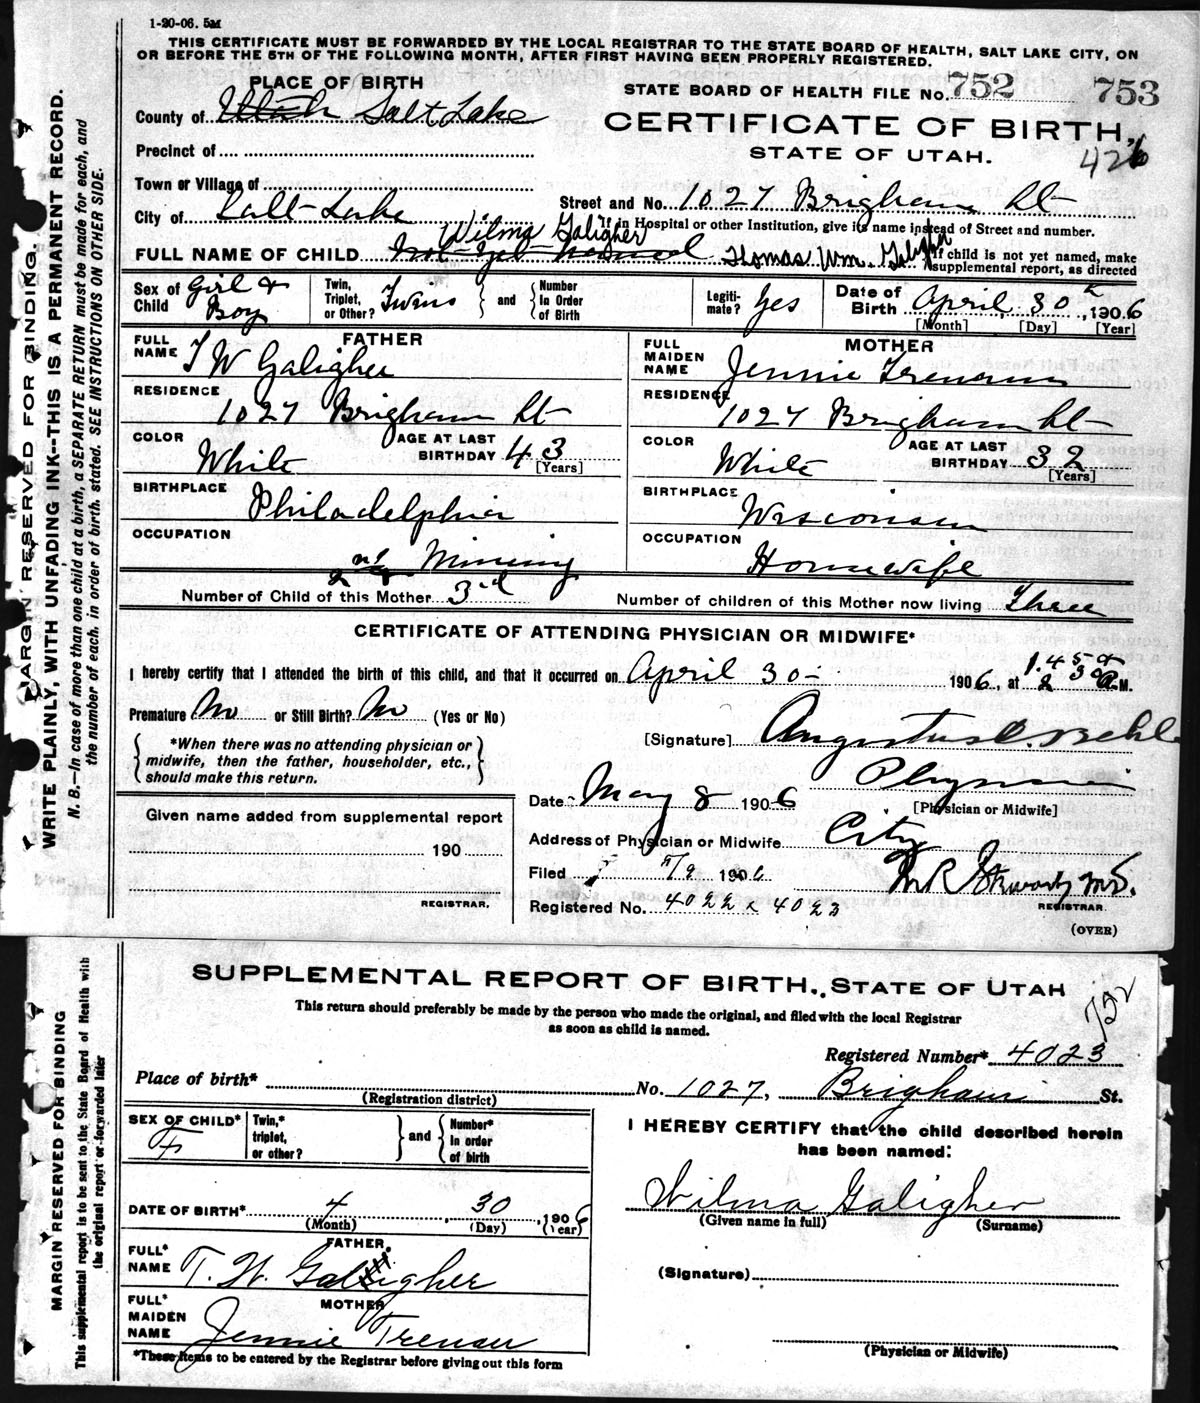 1-20-06. 5M
THIS CERTIFICATE MUST BE FORWARDED BY THE LOCAL REGISTRAR TO THE STATE BOARD OF HEALTH, SALT LAKE CITY, ON
OR BEFORE THE 5TH OF THE FOLLOWING MONTH, AFTER FIRST HAVING BEEN PROPERLY REGISTERED.
PLACE OF BIRTH
STATE BOARD OF HEALTH FILE No. 752 753
County of Utah Salt Lake
CERTIFICATE OF BIRTH,
Precinct of
STATE OF UTAH.
426
Town or Village of
City of Salt Lake
Street and No. 1027 Brigham St
If in Hospital or other Institution, give its name instead of Street and number.
Wilma Galigher
FULL NAME OF CHILD Not Yet named Thomas Wm. Galigher
If child is not yet named, make
supplemental report, as directed
Sex of Child Girl & Boy
Twin, Triplet, or Other? Twins
and
Number In Order of Birth
Legiti-mate? Yes
Date of Birth April 30, 1906
[Month] [Day] [Year]
FATHER
FULL NAME T W Galigher
RESIDENCE
1027 Brigham St
COLOR White
AGE AT LAST BIRTHDAY 43
[Years]
BIRTHPLACE
Philadelphia
OCCUPATION
Mining
MOTHER
FULL MAIDEN NAME Jennie Trenam
RESIDENCE
1027 Brigham St
COLOR White
AGE AT LAST BIRTHDAY 32
[Years]
BIRTHPLACE
Wisconsin
OCCUPATION
Housewife
Number of Child of this Mother 2nd & 3rd
Number of children of this Mother now living Three
CERTIFICATE OF ATTENDING PHYSICIAN OR MIDWIFE*
I hereby certify that I attended the birth of this child, and that it occurred on April 30 1906, at 1.45 & 2 30 A.M.
Premature No or Still Birth? No (Yes or No)
*When there was no attending physician or
midwife, then the father, householder, etc.,
should make this return.
[Signature] Augustus C. Behle
Physician
[Physician or Midwife]
Date May 8 1906
Given name added from supplemental report
190
REGISTRAR.
Address of Physician or Midwife City
Filed 5/9 1906
M R Stewart M.D.
REGISTRAR
Registered No. 4022 & 4023
(OVER)
MARGIN RESERVED FOR BINDING
WRITE PLAINLY, WITH UNFADING INK--THIS IS A PERMANENT RECORD.
N. B.—In case of more than one child at a birth, a SEPARATE RETURN must be made for each, and
the number of each, in order of birth, stated. SEE INSTRUCTIONS ON OTHER SIDE.
SUPPLEMENTAL REPORT OF BIRTH, STATE OF UTAH
752
This return should preferably be made by the person who made the original, and filed with the local Registrar
as soon as child is named.
Registered Number* 4023
Place of birth* No. 1027, Brigham St.
(Registration district)
SEX OF CHILD* F
Twin,* triplet, or other?
and
Number* in order of birth
DATE OF BIRTH* 4 30 1906
(Month) (Day) (Year)
FATHER
FULL* NAME T. W. Galigher
MOTHER
FULL* MAIDEN NAME Jennie Trenam
*These items to be entered by the Registrar before giving out this form
I HEREBY CERTIFY that the child described herein
has been named:
Wilma Galigher
(Given name in full) (Surname)
(Signature)
(Physician or Midwife)
MARGIN RESERVED FOR BINDING
This supplemental report is to be sent to the State Board of Health with
the original report or forwarded later